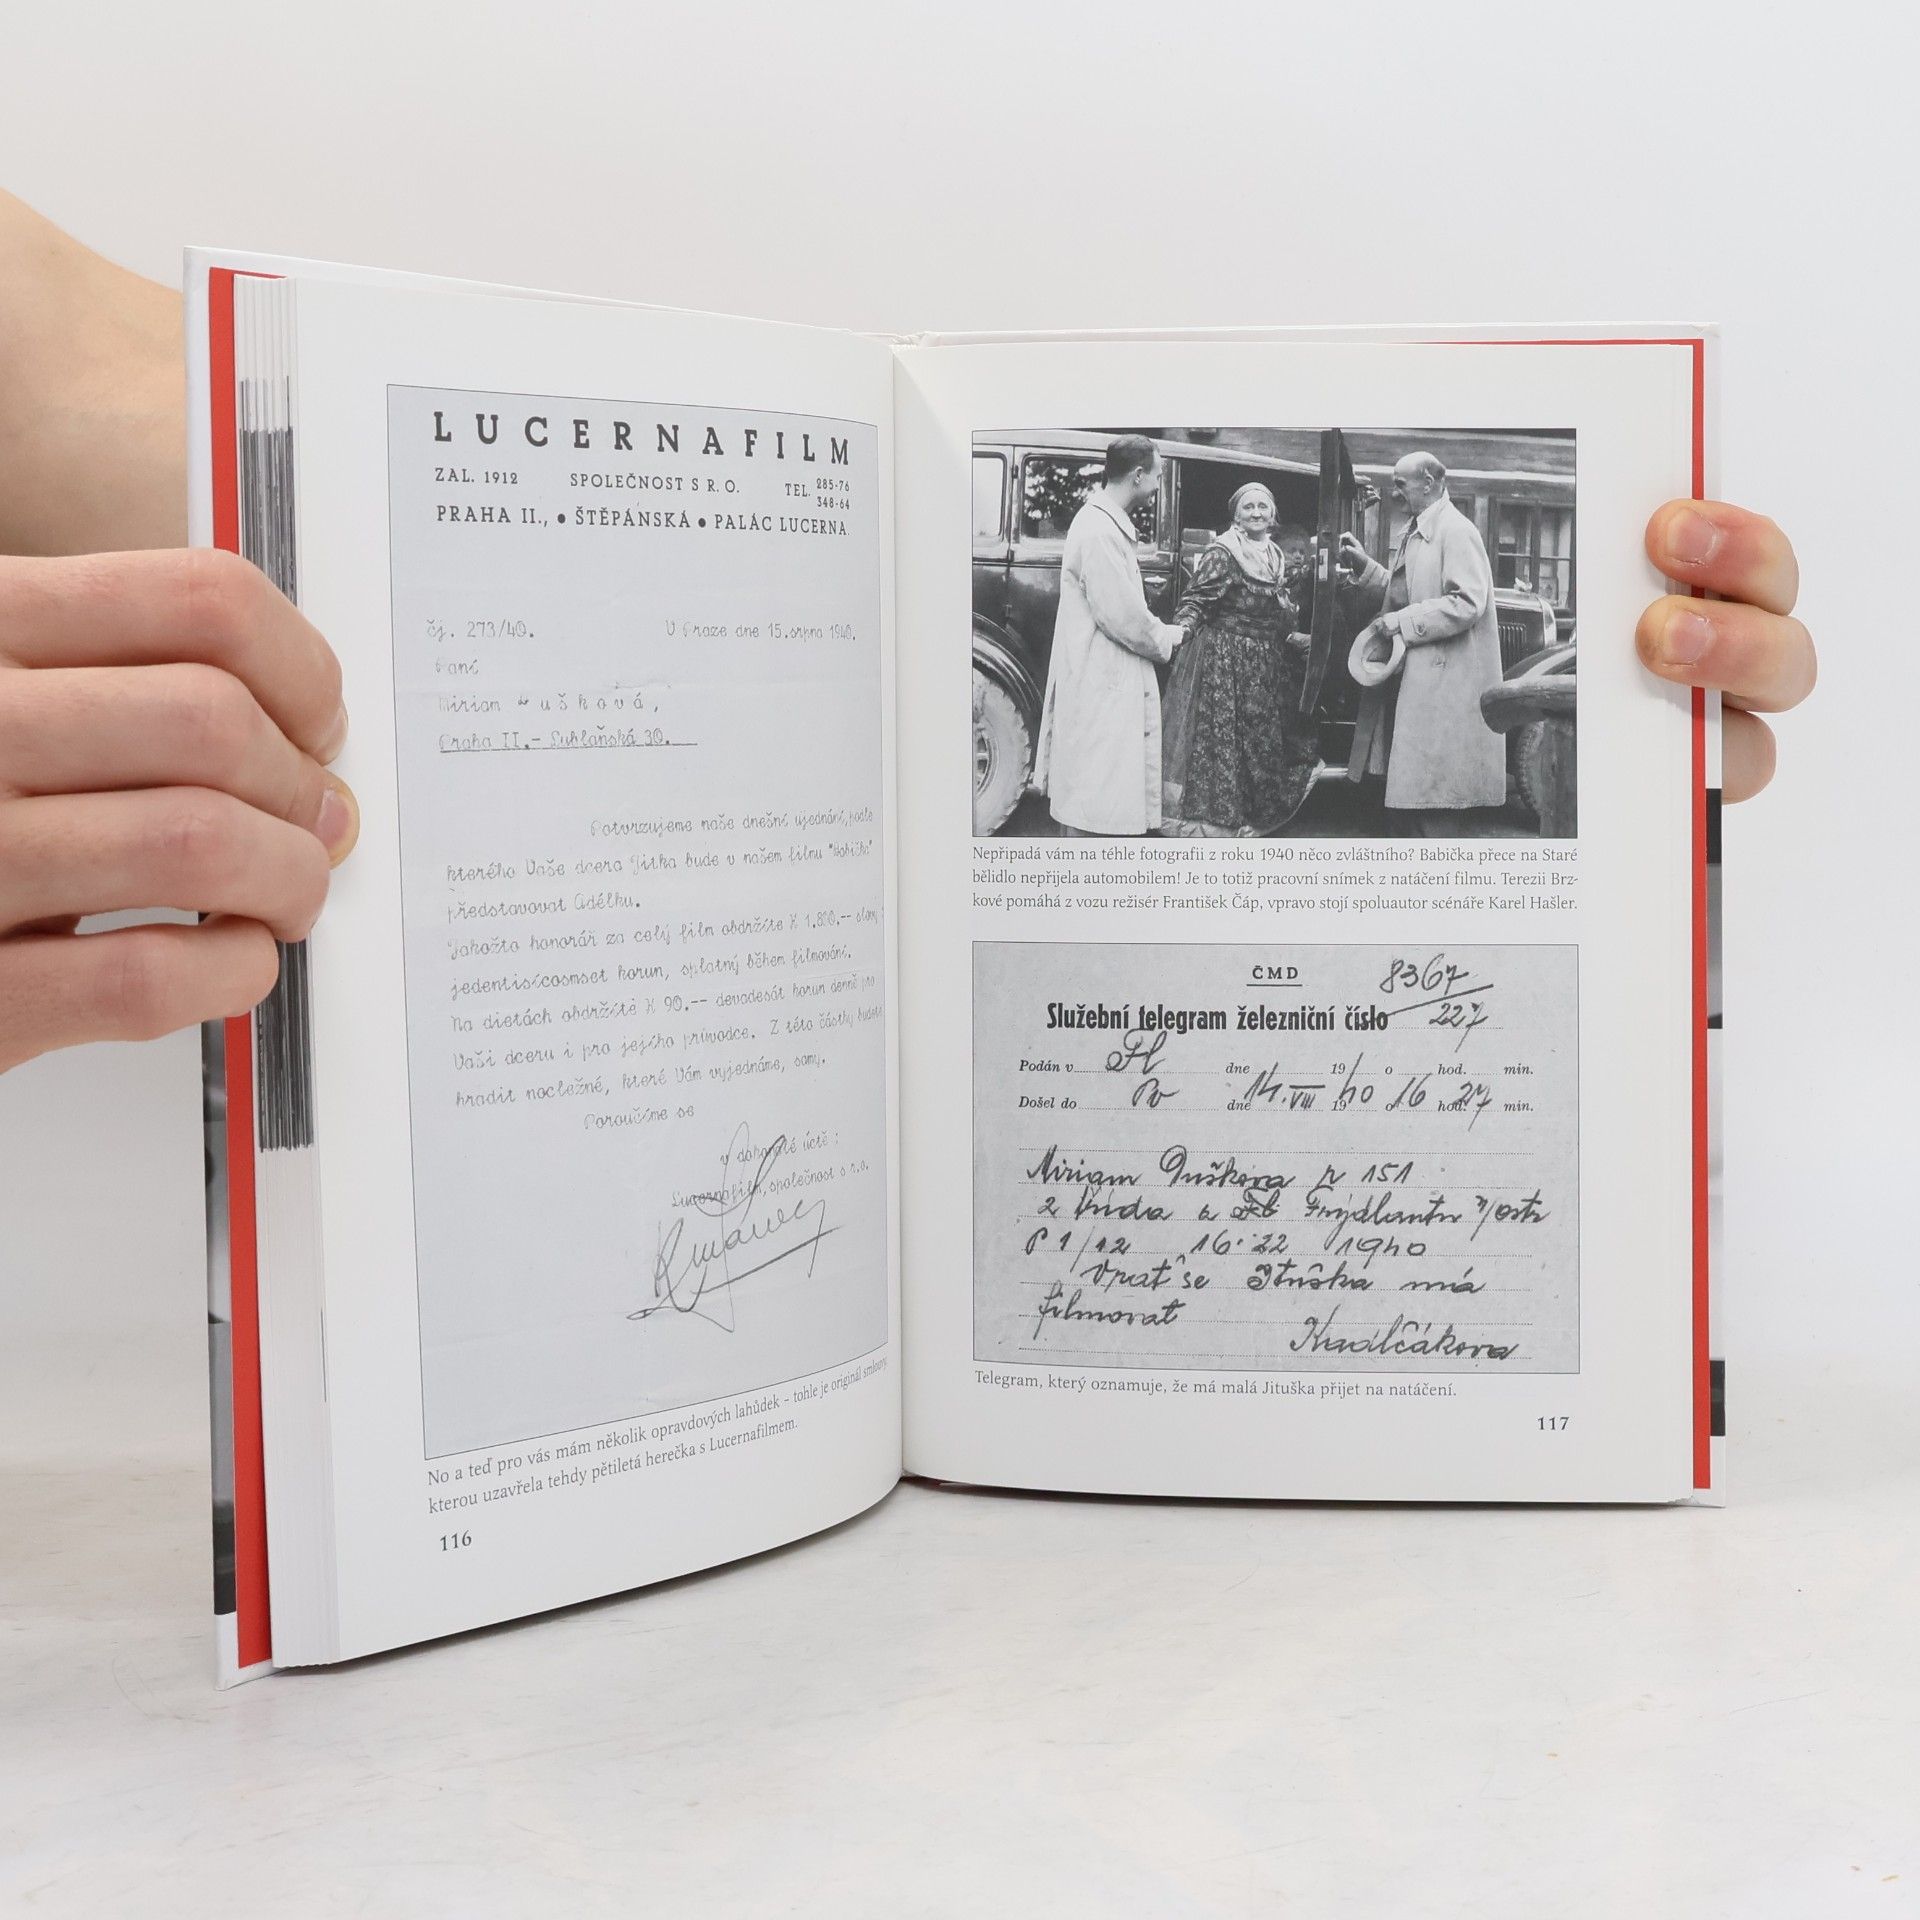 LUCERNAFILM
ZAL. 1912 SPOLEČNOST S R. O. TEL. 285-76
348-64
PRAHA II., ● ŠTĚPÁNSKÁ ● PALÁC LUCERNA.
čj. 273/40. V Praze dne 15.srpna 1940.
Paní
Miriam Dušková,
Praha II.- Lublaňská 30.
Potvrzujeme naše dnešní ujednání,podle
kterého Vaše dcera Jitka bude v našem filmu "Babička"
představovat Adélku.
Jakožto honorář za celý film obdržíte K 1.800.-- slovy
jedentisícosmset korun, splatný během filmování.
Na dietách obdržíte K 90.-- devadesát korun denně pro
Vaši dceru i pro jejího průvodce. Z této částky budete
hradit nocležné, které Vám vyjednáme, samy.
Poroučíme se
v dokonalé úctě :
Lucernafilm, společnost s r.o.
No a teď pro vás mám několik opravdových lahůdek – tohle je originál smlouvy,
kterou uzavřela tehdy pětiletá herečka s Lucernafilmem.
116
Nepřipadá vám na téhle fotografii z roku 1940 něco zvláštního? Babička přece na Staré
bělidlo nepřijela automobilem! Je to totiž pracovní snímek z natáčení filmu. Terezii Brz-
kové pomáhá z vozu režisér František Čáp, vpravo stojí spoluautor scénáře Karel Hašler.
ČMD 8367
Služební telegram železniční číslo 227
Podán v Fl dne 19 o hod. min.
Došel do Po dne 14.VIII 1940 o 16 hod. 27 min.
Miriam Dušková 151
2 Fl Frýdlantu n/Ostr
P 1/12 16·22 1940
Vrať se Jituška má
filmovat
Kadlčáková
Telegram, který oznamuje, že má malá Jituška přijet na natáčení.
117